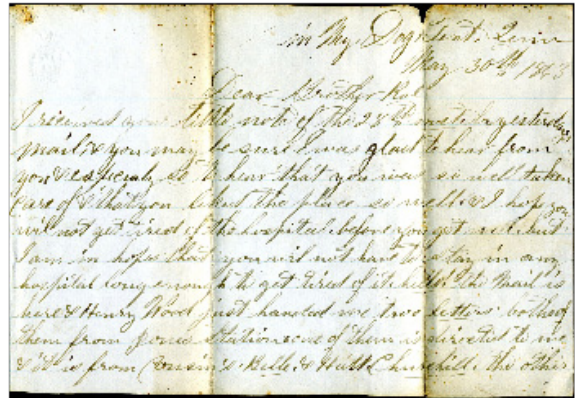 in My Dog Tent, Tenn
May 30th 1863
Dear Brother
I received your little note of the 28th by yesterdays
mail & you may be sure I was glad to hear from
you & especialy so to hear that you was so well taken
care of & that you liked the place so well & I hope you
will not get tired of the hospital before you get
I am in hopes that you will not have to stay in any
hospital long enough to get tired of it. The Mail is
here & Henry Wood just handed me two letters both of
them from station one of them is directed to me
& it is from Cousins Belle & Hatt Churchill, the other